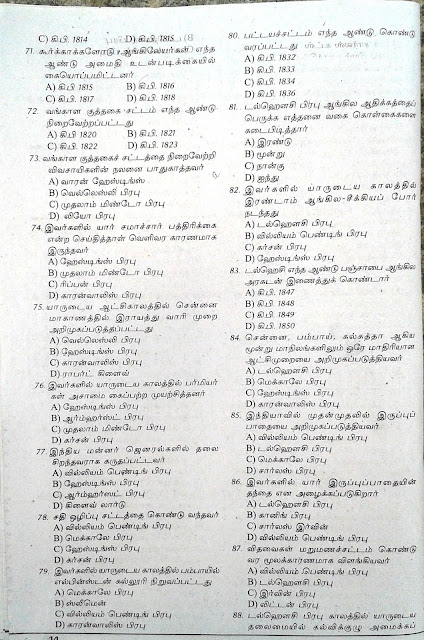 C) கி.பி. 1814 D) கி.பி. 1815
71. கூர்க்காக்களோடு ஆங்கிலேயர்கள் எந்த
ஆண்டு அமைதி உடன்படிக்கையில்
கையொப்பமிட்டனர்
A) கி.பி 1815 B) கி.பி. 1816
C) கி.பி. 1817 D) கி.பி. 1818
72. வங்காள குத்தகை சட்டம் எந்த ஆண்டு
நிறைவேற்றப்பட்டது
A) கி.பி 1820 B) கி.பி. 1821
C) கி.பி. 1822 D) கி.பி. 1823
73. வங்காள குத்தகைச் சட்டத்தை நிறைவேற்றி
விவசாயிகளின் நலனை பாதுகாத்தவர்
A) வாரன் ஹேஸ்டிங்ஸ்
B) வெல்லெஸ்லி பிரபு
C) முதலாம் மிண்டோ பிரபு
D) லியோ பிரபு
74. இவர்களில் யார் சமாச்சார் பத்திரிக்கை
என்ற செய்தித்தாள் வெளிவர காரணமாக
இருந்தவர்
A) ஹேஸ்டிங்ஸ் பிரபு
B) முதலாம் மிண்டோ பிரபு
C) ரிப்பன் பிரபு
D) காரன்வாலிஸ் பிரபு
75. யாருடைய ஆட்சிகாலத்தில் சென்னை
மாகாணத்தில் இராயத்து வாரி முறை
அறிமுகப்படுத்தப்பட்டது
A) வெல்லெஸ்லி பிரபு
B) ஹேஸ்டிங்ஸ் பிரபு
C) காரன்வாலிஸ் பிரபு
D) ராபர்ட் கிளைவ்
76. இவர்களில் யாருடைய காலத்தில் பர்மியர்
கள் அசாமை கைப்பற்ற முயற்சித்தனர்
A) ஹேஸ்டிங்ஸ் பிரபு
B) ஆர்ம்ஹர்ஸ்ட் பிரபு
C) முதலாம் மிண்டோ பிரபு
D) கர்சன் பிரபு
77. இந்திய மன்னர் ஜெனரல்களில் தலை
சிறந்தவராக கருதப்பட்டவர்
A) வில்லியம் பெண்டிங் பிரபு
B) ஹேஸ்டிங்ஸ் பிரபு
C) ஆர்ம்ஹர்ஸட் பிரபு
D) கிளைவ் லார்டு
78. சதி ஒழிப்பு சட்டத்தை கொண்டு வந்தவர்
A) வில்லியம் பெண்டிங் பிரபு
B) மெக்காலே பிரபு
C) ஹேஸ்டிங்ஸ் பிரபு
D) கர்சன் பிரபு
79. இவர்களில் யாருடைய காலத்தில் பம்பாயில்
எல்பின்ஸ்டன் கல்லூரி நிறுவப்பட்டது
A) மெக்காலே பிரபு
B) ஸ்லிமென்
C) வில்லியம் பெண்டிங் பிரபு
D) காரன்வாலிஸ் பிரபு
80. பட்டயச்சட்டம் எந்த ஆண்டு கொண்டு
வரப்பட்டது
A) கி.பி. 1832
B) கி.பி. 1833
C) கி.பி. 1834
D) கி.பி. 1836
81. டல்ஹௌசி பிரபு ஆங்கில ஆதிக்கத்தைப்
பெருக்க எத்தனை வகை கொள்கைகளை
கடைபிடித்தார்
A) இரண்டு
B) மூன்று
C) நான்கு
D) ஐந்து
82. இவர்களில் யாருடைய காலத்தில்
இரண்டாம் ஆங்கில-சீக்கியப் போர்
நடந்தது
A) டல்ஹௌசி பிரபு
B) வில்லியம் பெண்டிங் பிரபு
C) கர்சன் பிரபு
D) ஹேஸ்டிங்ஸ் பிரபு
83. டல்ஹெசி எந்த ஆண்டு பஞ்சாபை ஆங்கில
அரசுடன் இணைத்துக் கொண்டார்
A) கி.பி. 1847
B) கி.பி. 1848
C) கி.பி. 1849
D) கி.பி. 1850
84. சென்னை, பம்பாய், கல்கத்தா ஆகிய
மூன்று மாநிலங்களிலும் ஒரே மாதிரியான
ஆட்சிமுறையை அறிமுகப்படுத்தியவர்
A) டல்ஹௌசி பிரபு
B) மெக்காலே பிரபு
C) ஹேஸ்டிங்ஸ் பிரபு
D) காரன்வாலிஸ் பிரபு
85. இந்தியாவில் முதன்முதலில் இருப்புப்
பாதையை அறிமுகப்படுத்தியவர்
A) வில்லியம் பெண்டிங் பிரபு
B) டல்ஹௌசி பிரபு
C) மெக்காலே பிரபு
D) சார்லஸ் பிரபு
86. இவர்களில் யார் இருப்புப்பாதையின்
தந்தை என அழைக்கப்படுகிறார்
A) டல்ஹௌசி பிரபு
B) கானிங் பிரபு
C) சார்லஸ் இர்வின்
D) வில்லியம் பெண்டிங் பிரபு
87. விதவைகள் மறுமணச்சட்டம் கொண்டு
வர மூலக்காரணமாக விளங்கியவர்
A) வில்லியம் பெண்டிங் பிரபு
B) டல்ஹௌசி பிரபு
C) இர்வின் பிரபு
D) லிட்டன் பிரபு
88. டல்ஹௌசி பிரபு காலத்தில் யாருடைய
தலைமையில் கல்விக்குழு அமைக்கப்